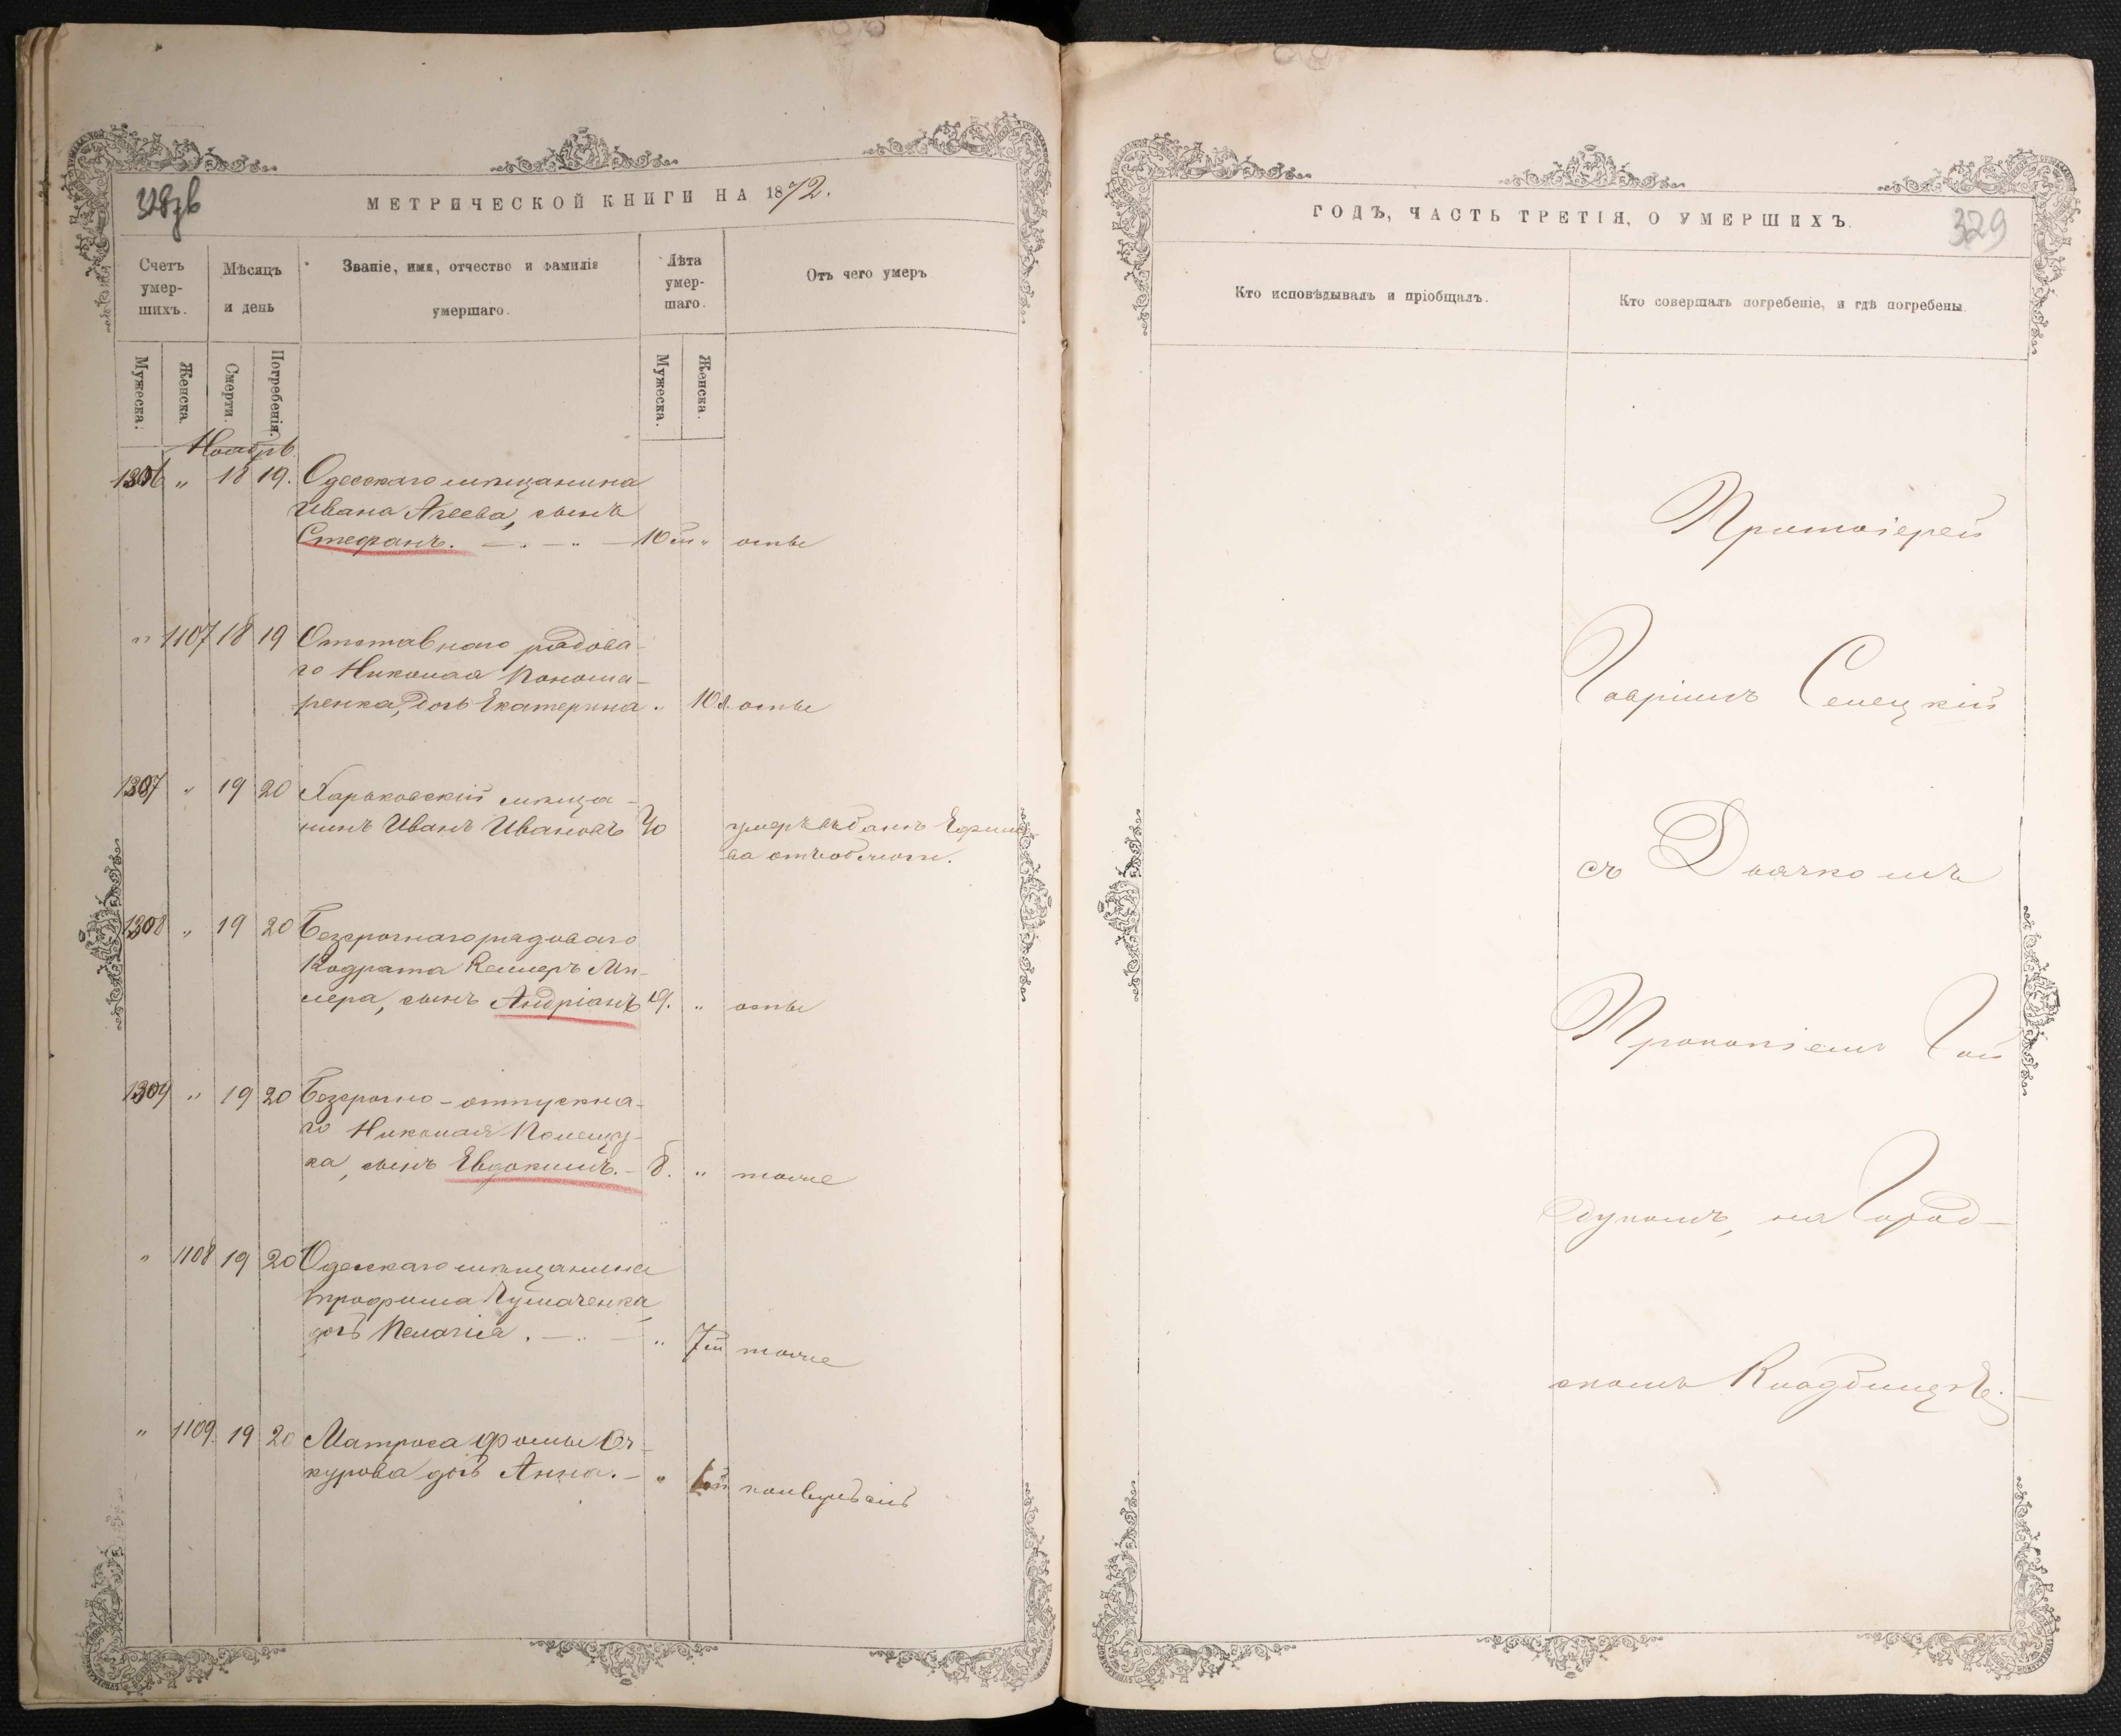 328зв
МЕТРИЧЕСКОЙ КНИГИ НА 1872.
Счетъ умер-шихъ.
Мѣсяцъ и день
Званіе, имя, отчество и фамилія умершаго.
Лѣта умер-шаго.
Отъ чего умеръ
Мужеска.
Женска.
Смерти.
Погребенія.
Мужеска.
Женска.
Ноябрь
1306 „ 18 19. Одесскаго мѣщанина
Ивана Агеева, сынъ
Стефанъ. 10 м „ оспы
„ 1107 18 19 Отставнаго рядова-
го Николая Понома-
ренка, дочь Екатерина „ 10 оспы
1307 „ 19 20 Харьковскій мѣща-
нинъ Иванъ Ивановъ 40 умеръ въ банѣ
1308 „ 19 20 Безсрочнаго рядоваго
Кодрата Келлеръ Ми-
лера, сынъ Андріанъ 19. „ оспы
1309 „ 19 20 Безсрочно-отпускна-
го Николая Полещу-
ка, сынъ Евдокимъ. „ тоже
„ 1108 19 20 Одесскаго мѣщанина
Трофима Чумаченка,
дочь Пелагія. „ 7 м тоже
„ 1109. 19 20 Матроса Фомы
курова дочь Анна. „
ГОДЪ, ЧАСТЬ ТРЕТІЯ, О УМЕРШИХЪ.
329
Кто исповѣдывалъ и пріобщалъ.
Кто совершалъ погребеніе, и гдѣ погребены.
Протоіерей
Гавріилъ Селецкій
съ Дьячкомъ
Прокопіемъ Гай
дукомъ, на Город-
скомъ Кладбищѣ.